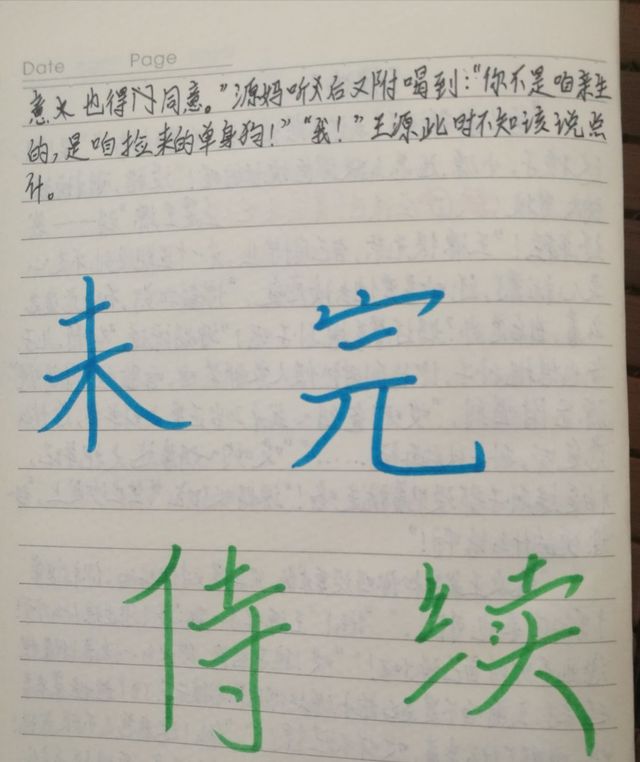 Date Page
意义也得门同意。”源妈听义后又附喝到：“你不是咱亲生
的，是咱捡来的单身狗！”“我！”王源此时不知该说点
什。
未完
侍续